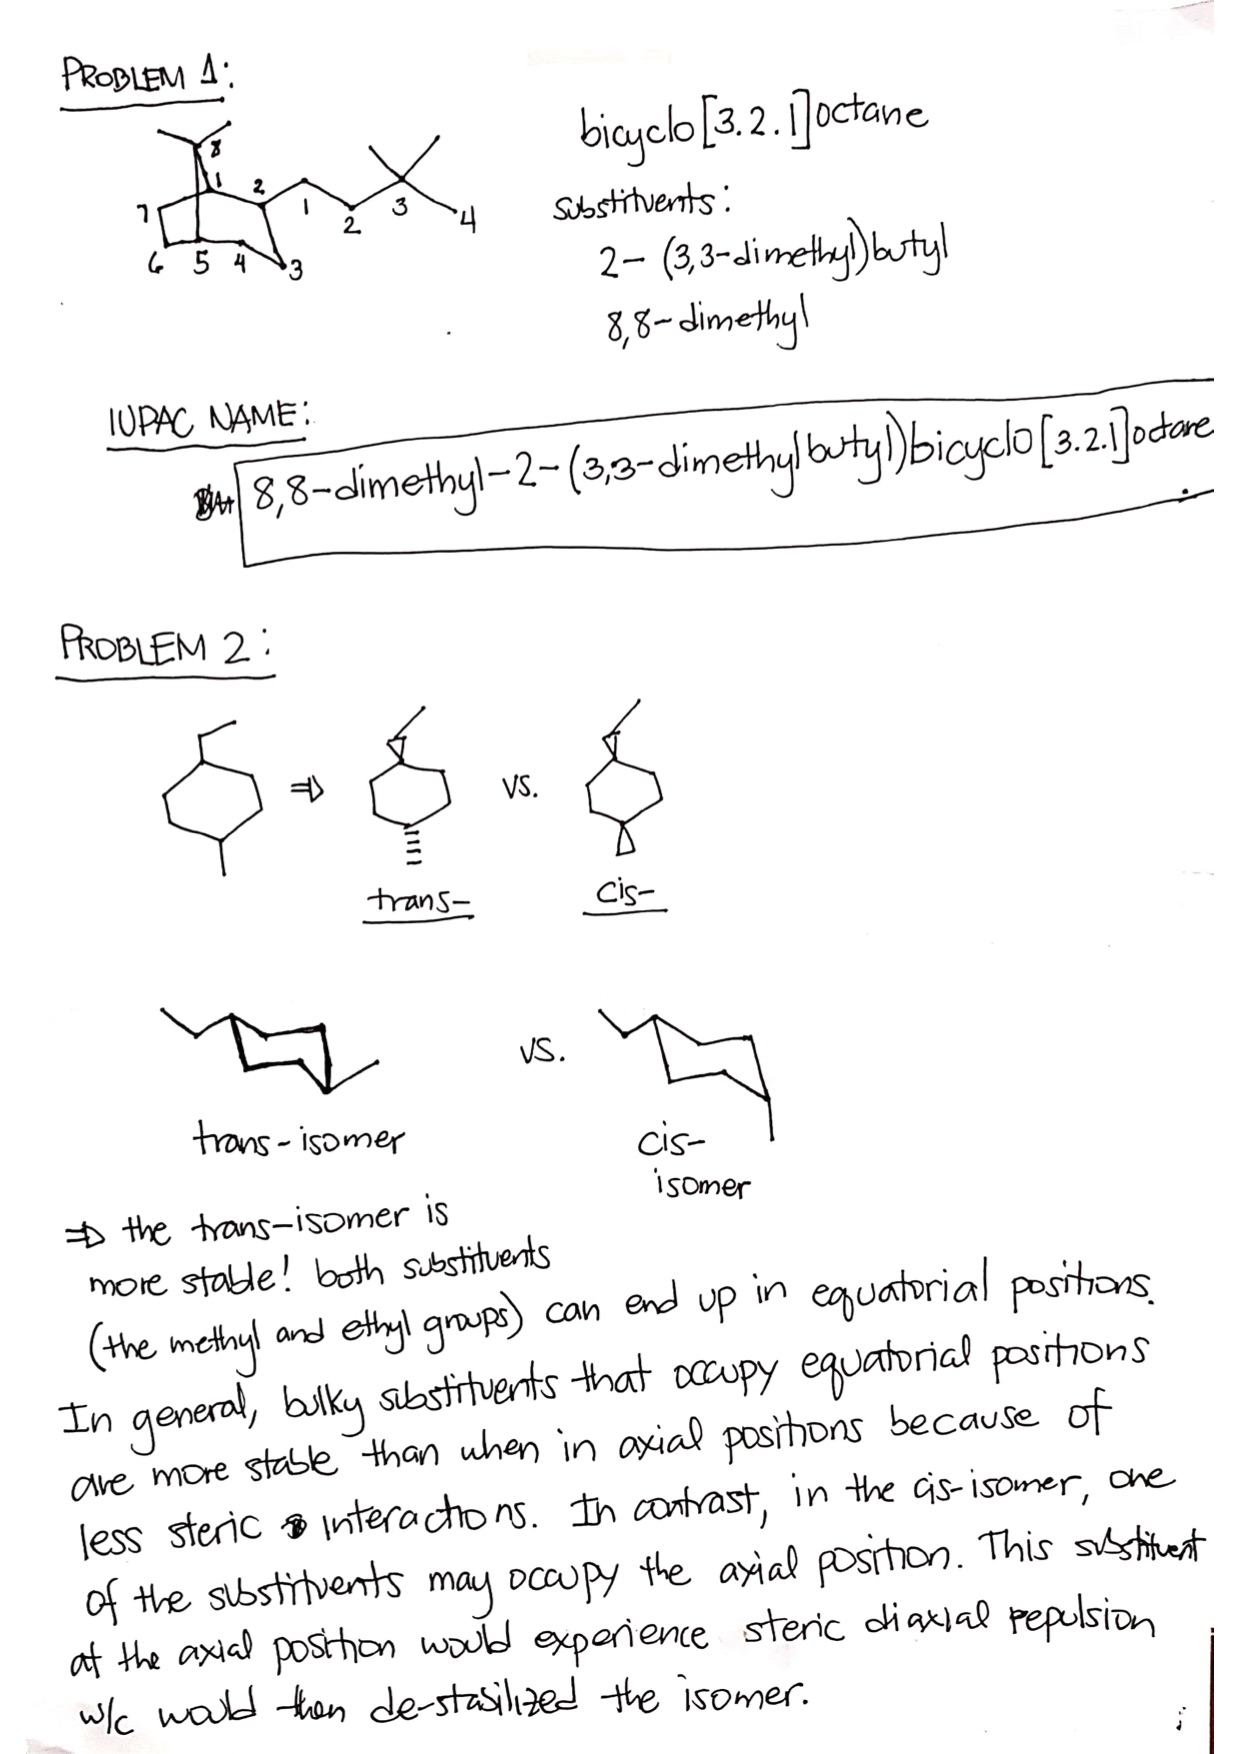 PROBLEM 1:
bicyclo[3.2.1]octane
8
1
2
7
1
2
3
4
6
5
4
3
substituents:
2-(3,3-dimethyl)butyl
8,8-dimethyl
IUPAC NAME:
8,8-dimethyl-2-(3,3-dimethylbutyl)bicyclo[3.2.1]octane
PROBLEM 2:
⇒
vs.
trans-
cis-
vs.
trans-isomer
cis-
isomer
⇒ the trans-isomer is
more stable! both substituents
(the methyl and ethyl groups) can end up in equatorial positions.
In general, bulky substituents that occupy equatorial positions
are more stable than when in axial positions because of
less steric interactions. In contrast, in the cis-isomer, one
of the substituents may occupy the axial position. This substituent
at the axial position would experience steric diaxial repulsion
w/c would then de-stasilized the isomer.